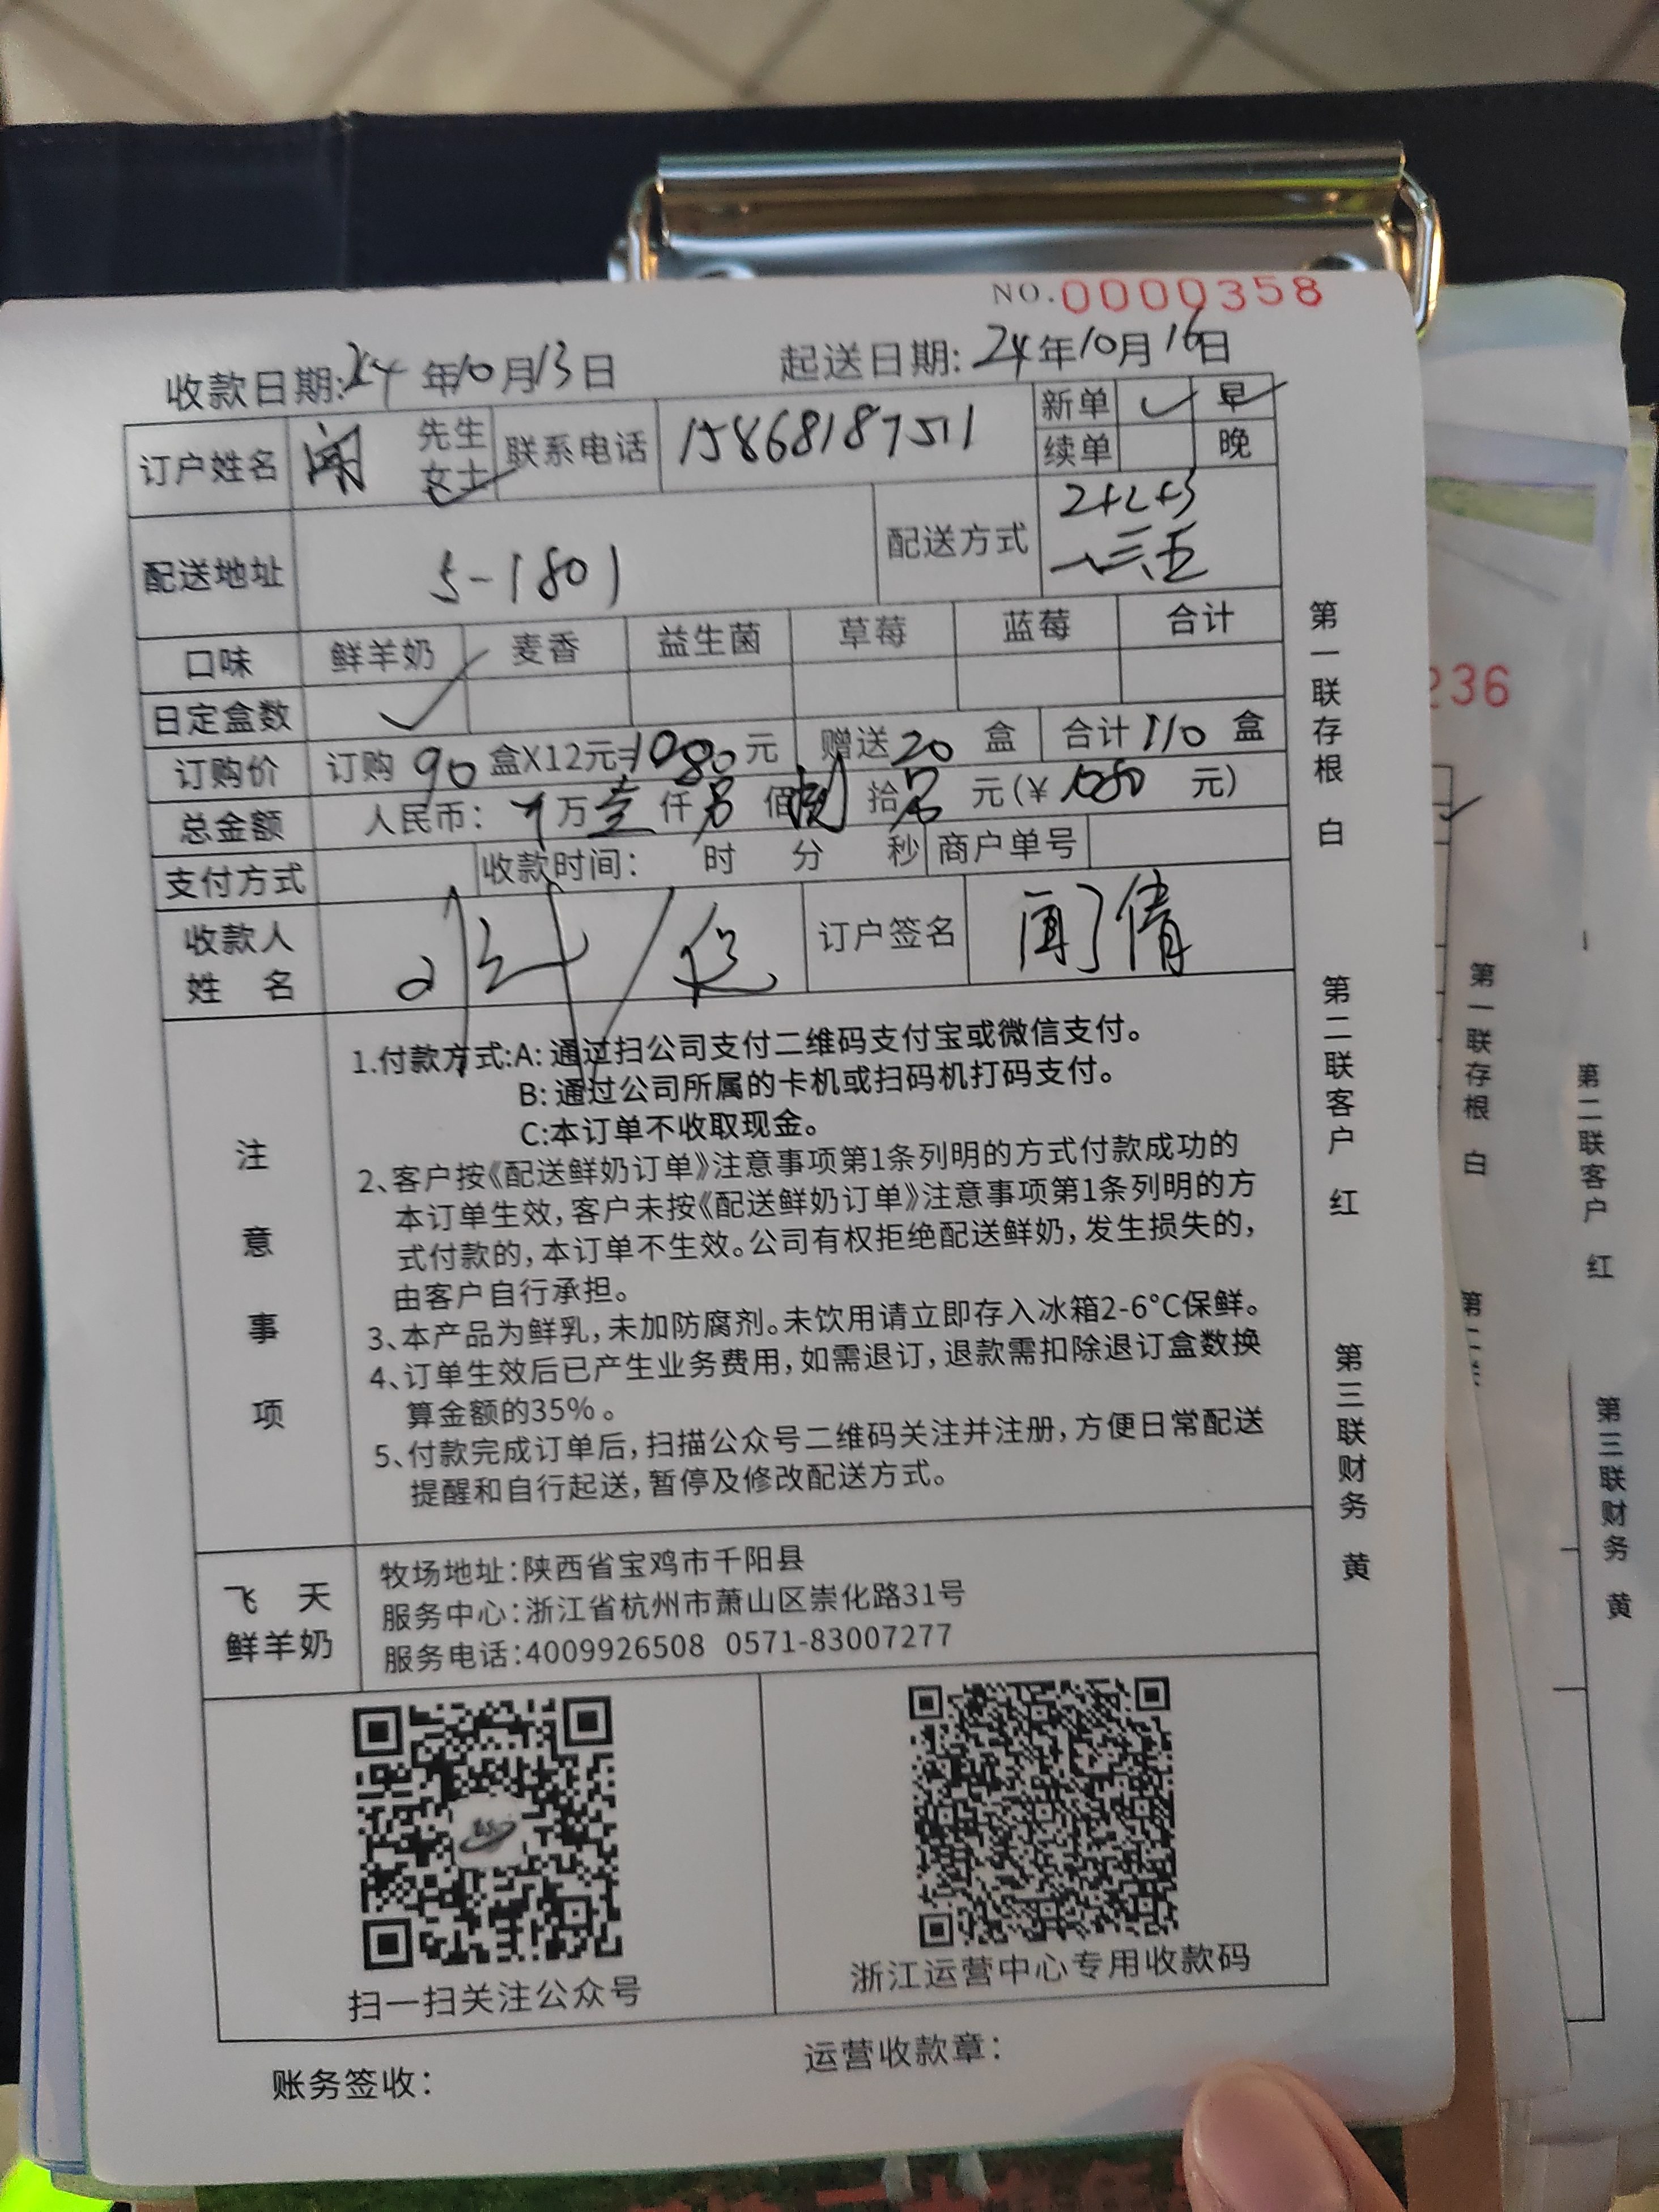 NO.0000358
收款日期:24年10月13日 起送日期:24年10月16日
订户姓名 闻 先生 女士 联系电话 15868187511 新单 早
续单 晚
配送地址 5-1801 配送方式 2+2+3
一三五
口味 鲜羊奶 麦香 益生菌 草莓 蓝莓 合计
日定盒数
订购价 订购 90 盒X12元=1080元 赠送20盒 合计110盒
总金额 人民币： 万壹仟 佰捌拾 元(￥1080元)
支付方式 收款时间： 时 分 秒 商户单号
收款人
姓 名
订户签名 闻倩
注意事项
1.付款方式:A:通过扫公司支付二维码支付宝或微信支付。
B:通过公司所属的卡机或扫码机打码支付。
C:本订单不收取现金。
2、客户按《配送鲜奶订单》注意事项第1条列明的方式付款成功的
本订单生效,客户未按《配送鲜奶订单》注意事项第1条列明的方
式付款的,本订单不生效。公司有权拒绝配送鲜奶,发生损失的,
由客户自行承担。
3、本产品为鲜乳,未加防腐剂。未饮用请立即存入冰箱2-6°C保鲜。
4、订单生效后已产生业务费用,如需退订,退款需扣除退订盒数换
算金额的35%。
5、付款完成订单后,扫描公众号二维码关注并注册,方便日常配送
提醒和自行起送,暂停及修改配送方式。
飞 天
鲜羊奶
牧场地址:陕西省宝鸡市千阳县
服务中心:浙江省杭州市萧山区崇化路31号
服务电话:4009926508 0571-83007277
扫一扫关注公众号
浙江运营中心专用收款码
账务签收：
运营收款章：
第一联存根 白
第二联客户 红
第三联财务 黄
236
第一联存根 白
第二联客户 红
第三联财务 黄